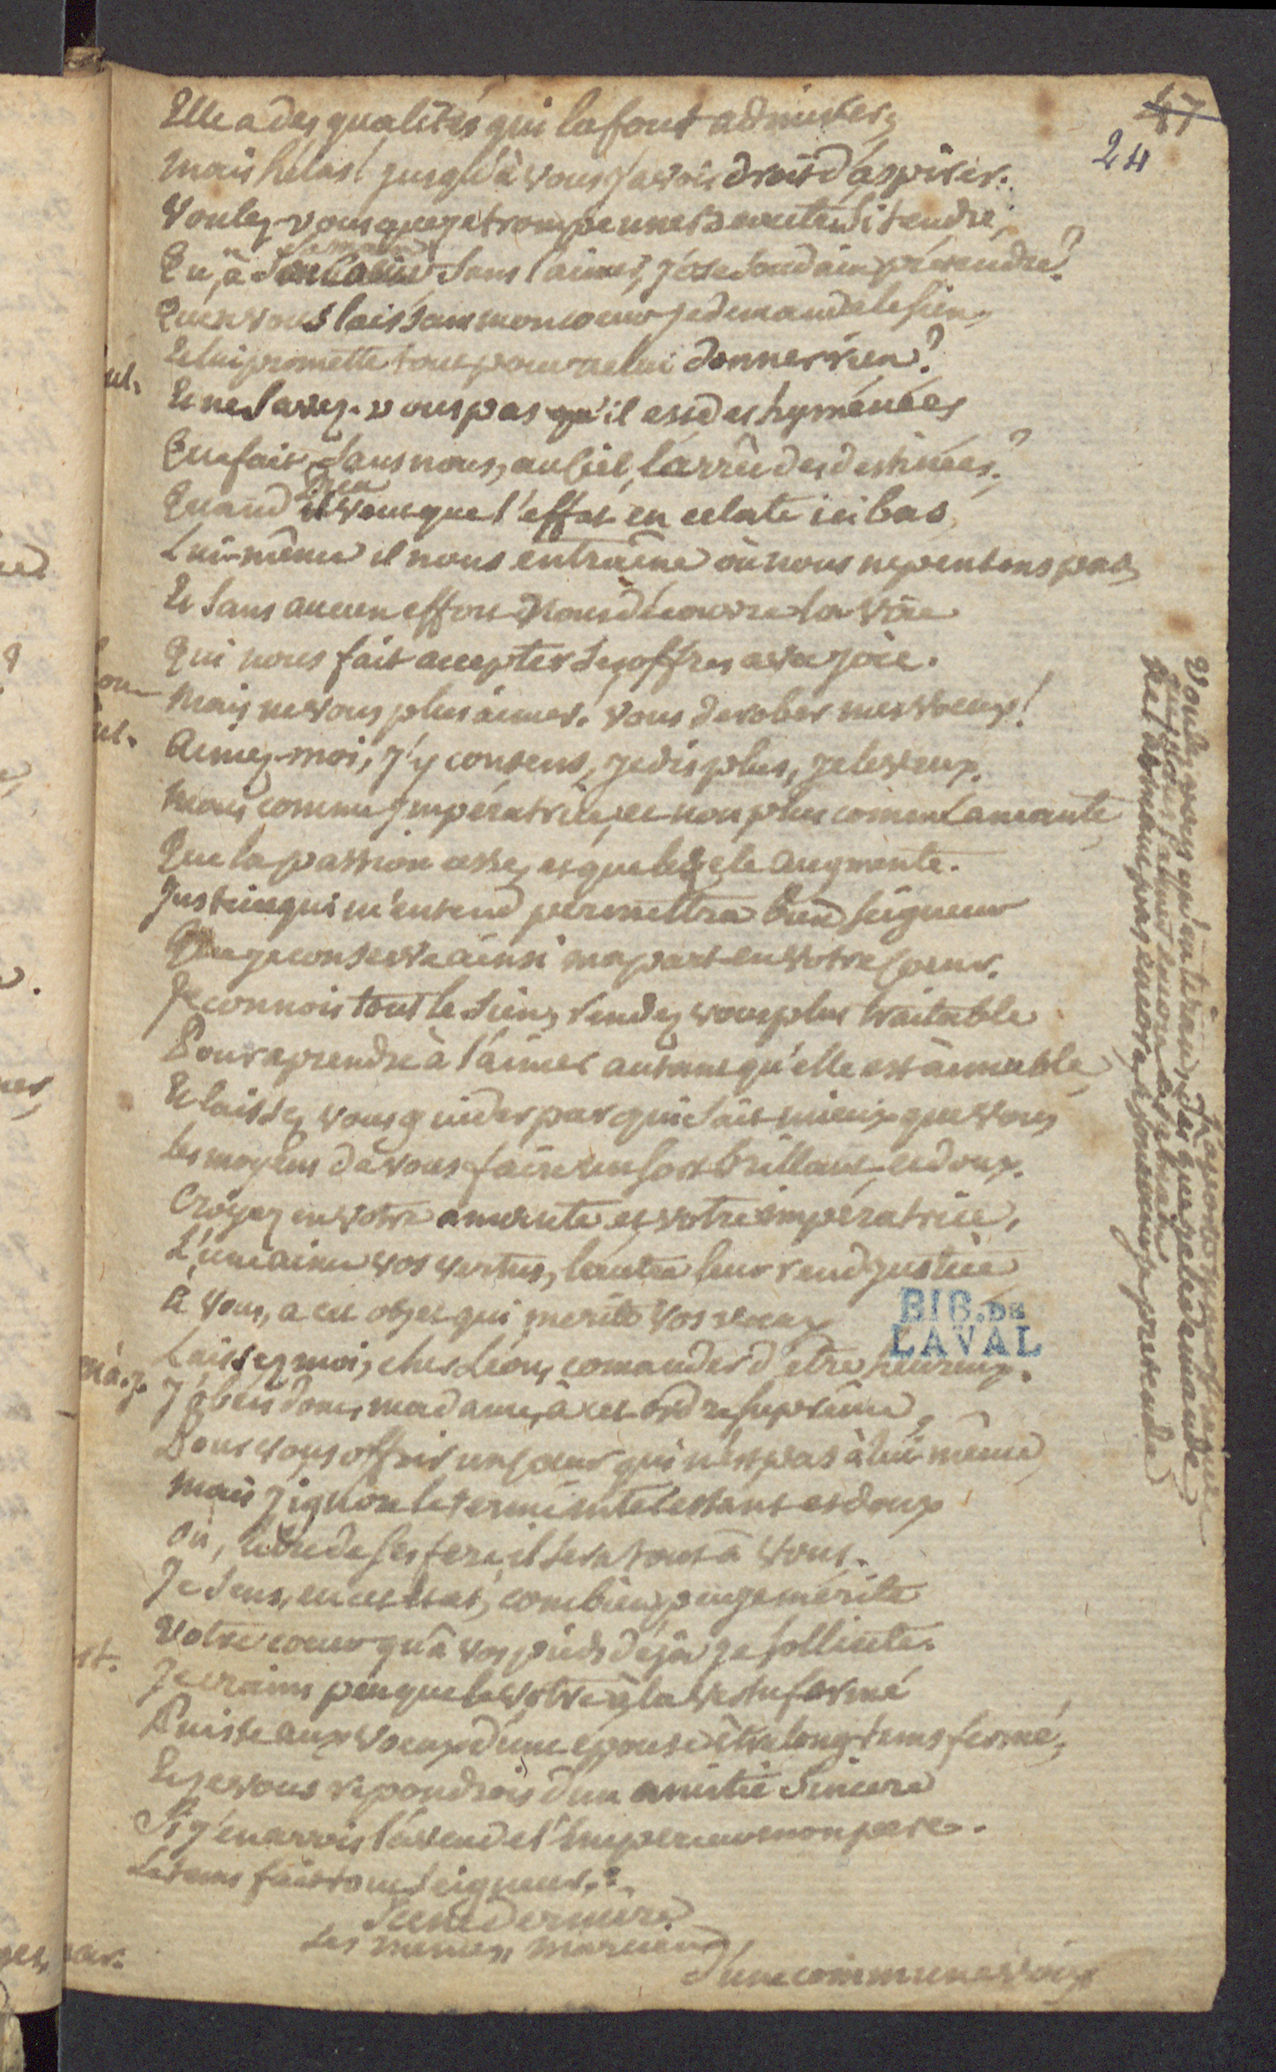 47
24
Elle a des qualités qui la font admirer,
mais hélas! jusqu'à vous j'avois droit d'aspirer.
Voulez-vous que je trompe une si tendre,
Qu'à sa main sans l'aimer, j'ose soudain prétendre?
Qu'en vous laissant mon coeur je demande le sien,
Et lui promette tout pour ne lui donner rien?
ul. Et ne savez-vous pas qu'il est des hyménées
Que fait, sans nous, au Ciel, l'arrêt des destinées?
Quand Dieu veut que l'effet en eclate ici bas
Lui-même il nous entraîne où nous ne pensons pas,
Et sans aucun effort nous découvre la voie
Qui nous fait accepter ses offres avec joie.
on mais ne vous plus aimer! vous derober mes voeux!
ul. Aimez-moi, j'y consens, je dis plus, je le veux,
mais comme impératrice, et non plus comme amante
Que la passion cesse, et que le zele augmente.
Justine qui m'entend permettra bien seigneur
Que je conserve ainsi ma part en votre coeur.
Je connois tout le sien, rendez vous plus traitable
Pour aprendre à l'aimer autant qu'elle est aimable,
Et laissez vous guider par qui sait mieux que vous
Les moyens de vous faire un sort brillant et doux.
Croyez en votre amante et votre impératrice,
L'une aime vos vertus, l'autre leur rend justice
à vous, a cet objet qui mérite vos voeux
Laissez moi, cher Léon, comander d'etre heureux.
J'obeis donc, madame, à cet ordre suprême,
Pour vous offrir un coeur qui n'est pas à lui même
mais j'ignore le terme interessant et doux
Où, libre de ses fers, il sera tout à vous.
Je sens, en cet etat, combien peu je mérite
Votre coeur qu'à vos pieds déjà je sollicite.
st. Je crains peu que le votre à la vertu formé
Puisse aux voeux d'une épouse être long-tems fermé,
Et je vous répondrois d'une amitié sincere
Si j'en avois l'aveu de l'Empereur mon pere.
ar. Le tems fait tout seigneur.
Scene derniere
Les memes, marcien
d'une commune voix
Voulez-vous qu'un dès que je le demande
BIB. DE
LAVAL